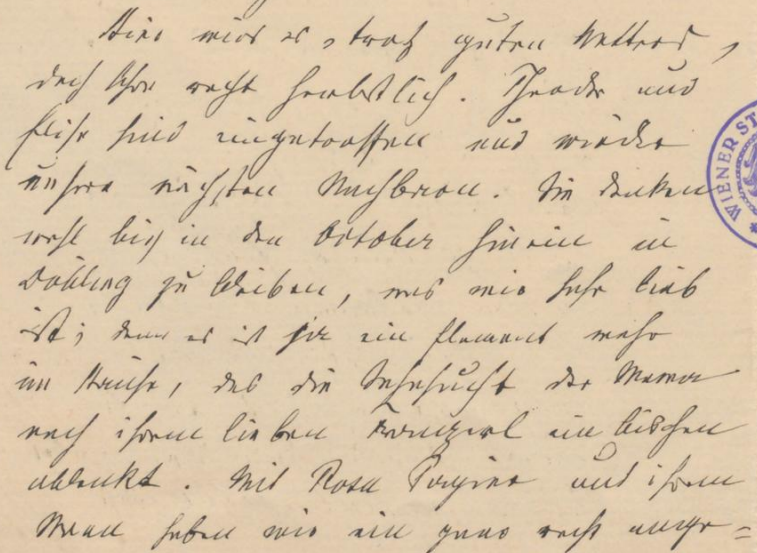 Hier wird es, trotz guten Wetters,
doch schon recht herbstlich. Theodor und
Elise sind eingetroffen und wieder
unsere nächsten Nachbarn. Sie denken
wohl bis in den October hinein in
Döbling zu bleiben, was mir sehr lieb
ist; denn es ist ja ein Element mehr
im Hause, das die Sehnsucht der Mama
nach ihrem lieben Franzerl ein bischen
ablenkt. Mit Rosa und ihrem
Mann haben wir ein recht ange=
WIENER ST